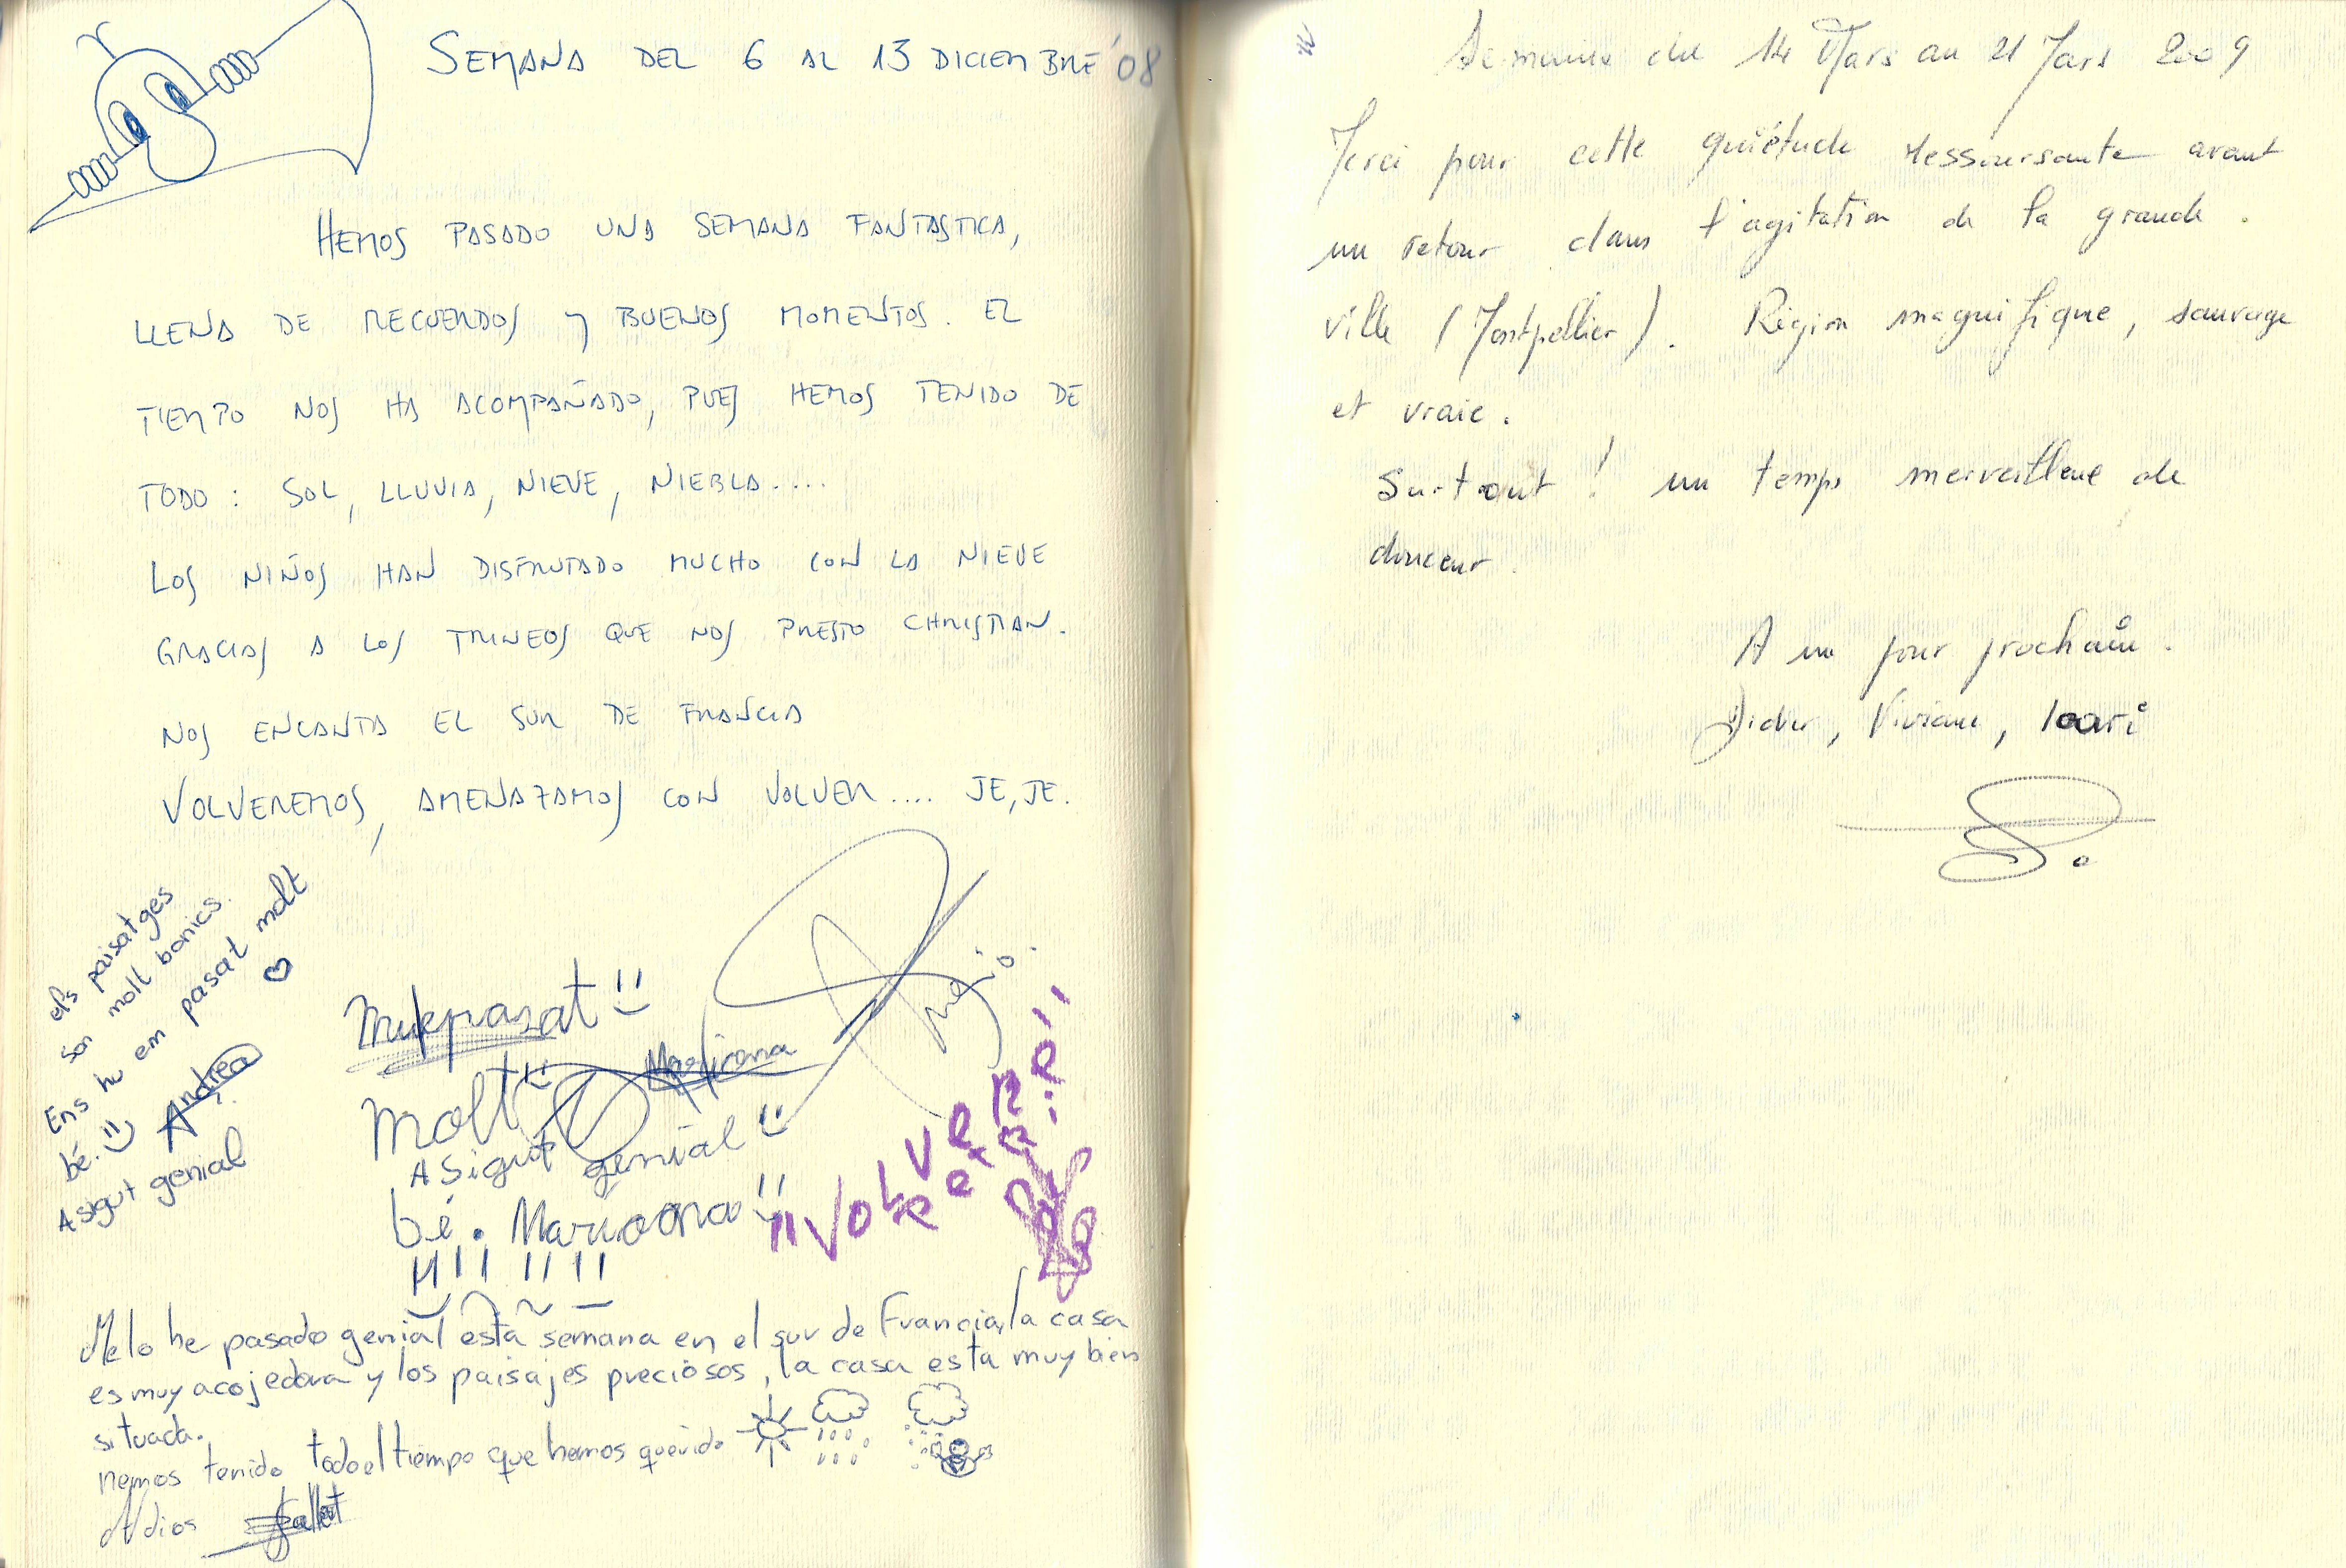 SEMANA DEL 6 AL 13 DICIEMBRE '08
HEMOS PASADO UNA SEMANA FANTASTICA,
LLENA DE RECUERDOS Y BUENOS MOMENTOS. EL
TIEMPO NOS HA ACOMPAÑADO, PUES HEMOS TENIDO DE
TODO: SOL, LLUVIA, NIEVE, NIEBLA....
LOS NIÑOS HAN DISFRUTADO MUCHO CON LA NIEVE
GRACIAS A LOS TRINEOS QUE NOS PRESTO CHRISTIAN.
NOS ENCANTA EL SUR DE FRANCIA
VOLVEREMOS, AMENAZAMOS CON VOLVER.... JE, JE.
els paisatges
són molt bonics.
Ens hu em pasat molt
bé.
Andrea
Asigut genial
pasat
Molt
Asigut genial
bé. Marioona
VOLVERÉ
Me lo he pasado genial esta semana en el sur de Francia, la casa
es muy acojedora y los paisajes preciosos, la casa esta muy bien
situada.
Hemos tenido todo el tiempo que hemos querido
Adios
Semaine du 14 Mars au 21 Mars 2009
Merci pour cette quiétude ressoursante avant
un retour dans l'agitation de la grande
ville (Montpellier). Région magnifique, sauvage
et vraie.
Surtout ! un temps merveilleue de
douceur.
A un jour prochain.
Didier, Viviane,